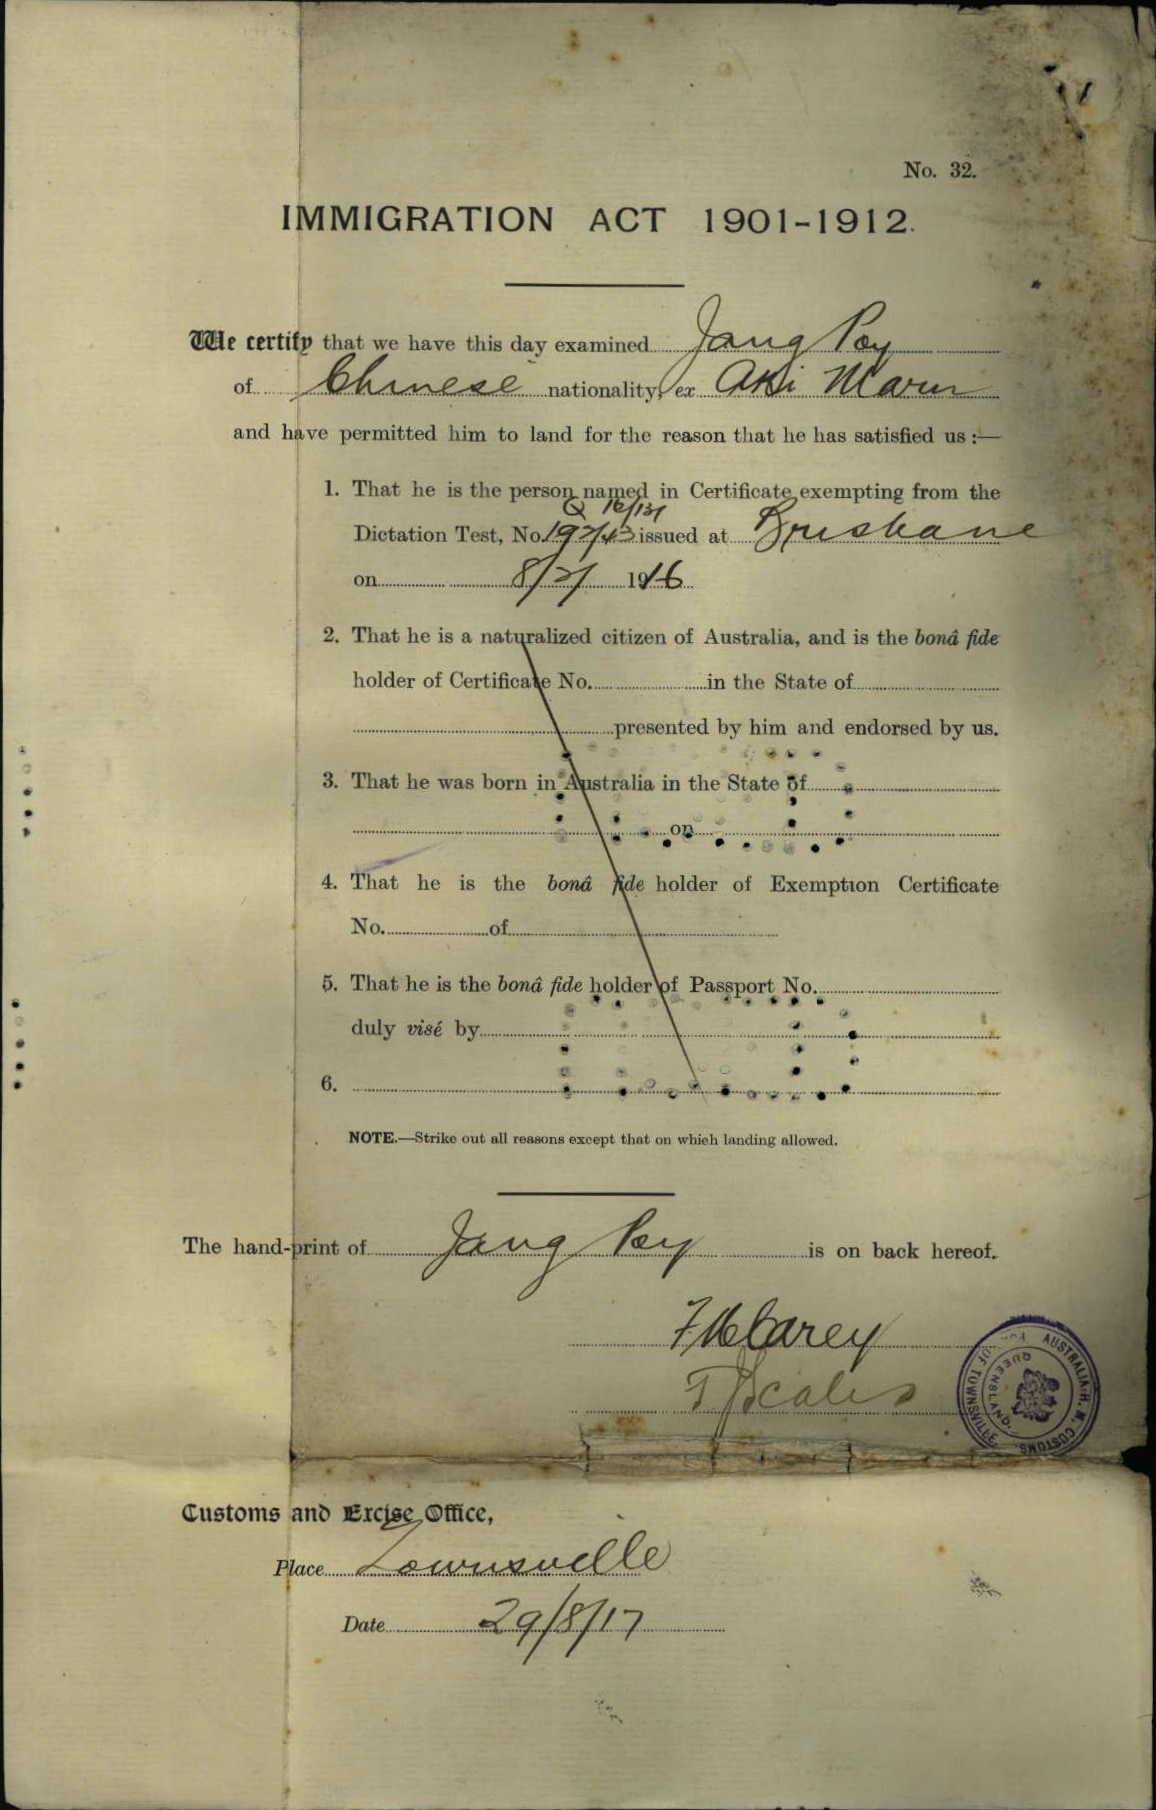 No. 32.
IMMIGRATION ACT 1901-1912.
We certify that we have this day examined Jang Poy
of Chinese nationality, ex Aki Maru
and have permitted him to land for the reason that he has satisfied us :—
1. That he is the person named in Certificate exempting from the
Q 16/131
Dictation Test, No. 197/43 issued at Brisbane
on 8/2/ 1916
2. That he is a naturalized citizen of Australia, and is the bonâ fide
holder of Certificate No. in the State of
presented by him and endorsed by us.
3. That he was born in Australia in the State of
on
4. That he is the bonâ fide holder of Exemption Certificate
No. of
5. That he is the bonâ fide holder of Passport No.
duly visé by
6.
NOTE.—Strike out all reasons except that on which landing allowed.
The hand-print of Jang Poy is on back hereof.
Carey
Scales
AUSTRALIA. H. M. CUSTOMS. OF TOWNSVILLE
QUEENSLAND.
Customs and Excise Office,
Place Townsville
Date 29/8/17